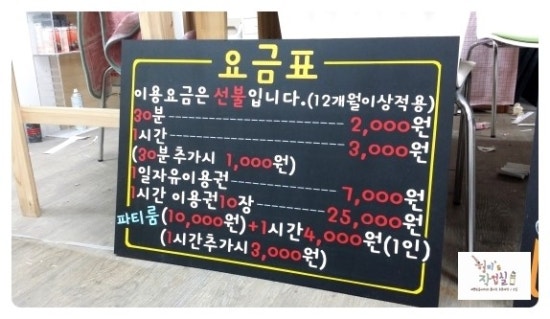 요금표
이용요금은 선불입니다.(12개월이상적용)
30분 2,000원
1시간 3,000원
(30분 추가시 1,000원)
1일자유이용권 7,000원
1시간 이용권10장 25,000원
파티룸(10,000원)+1시간4,000원(1인)
(1시간추가시3,000원)